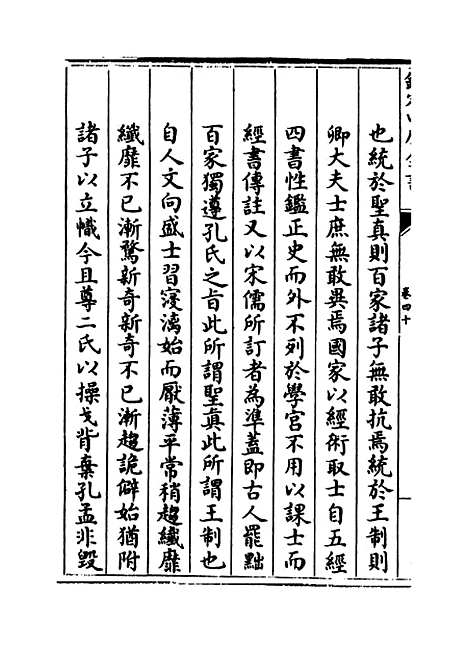 欽定四庫全書
卷四十
也統於聖真則百家諸子無敢抗焉統於王制則
卿大夫士庶無敢異焉國家以經術取士自五經
四書性鑑正史而外不列於學官不用以課士而
經書傳註又以宋儒所訂者為準蓋即古人罷黜
百家獨遵孔氏之旨此所謂聖真此所謂王制也
自人文向盛士習寖漓始而厭薄平常稍趨纖靡
纖靡不已漸騖新奇新奇不已漸趨詭僻始猶附
諸子以立幟今且尊二氏以操戈背棄孔孟非毀